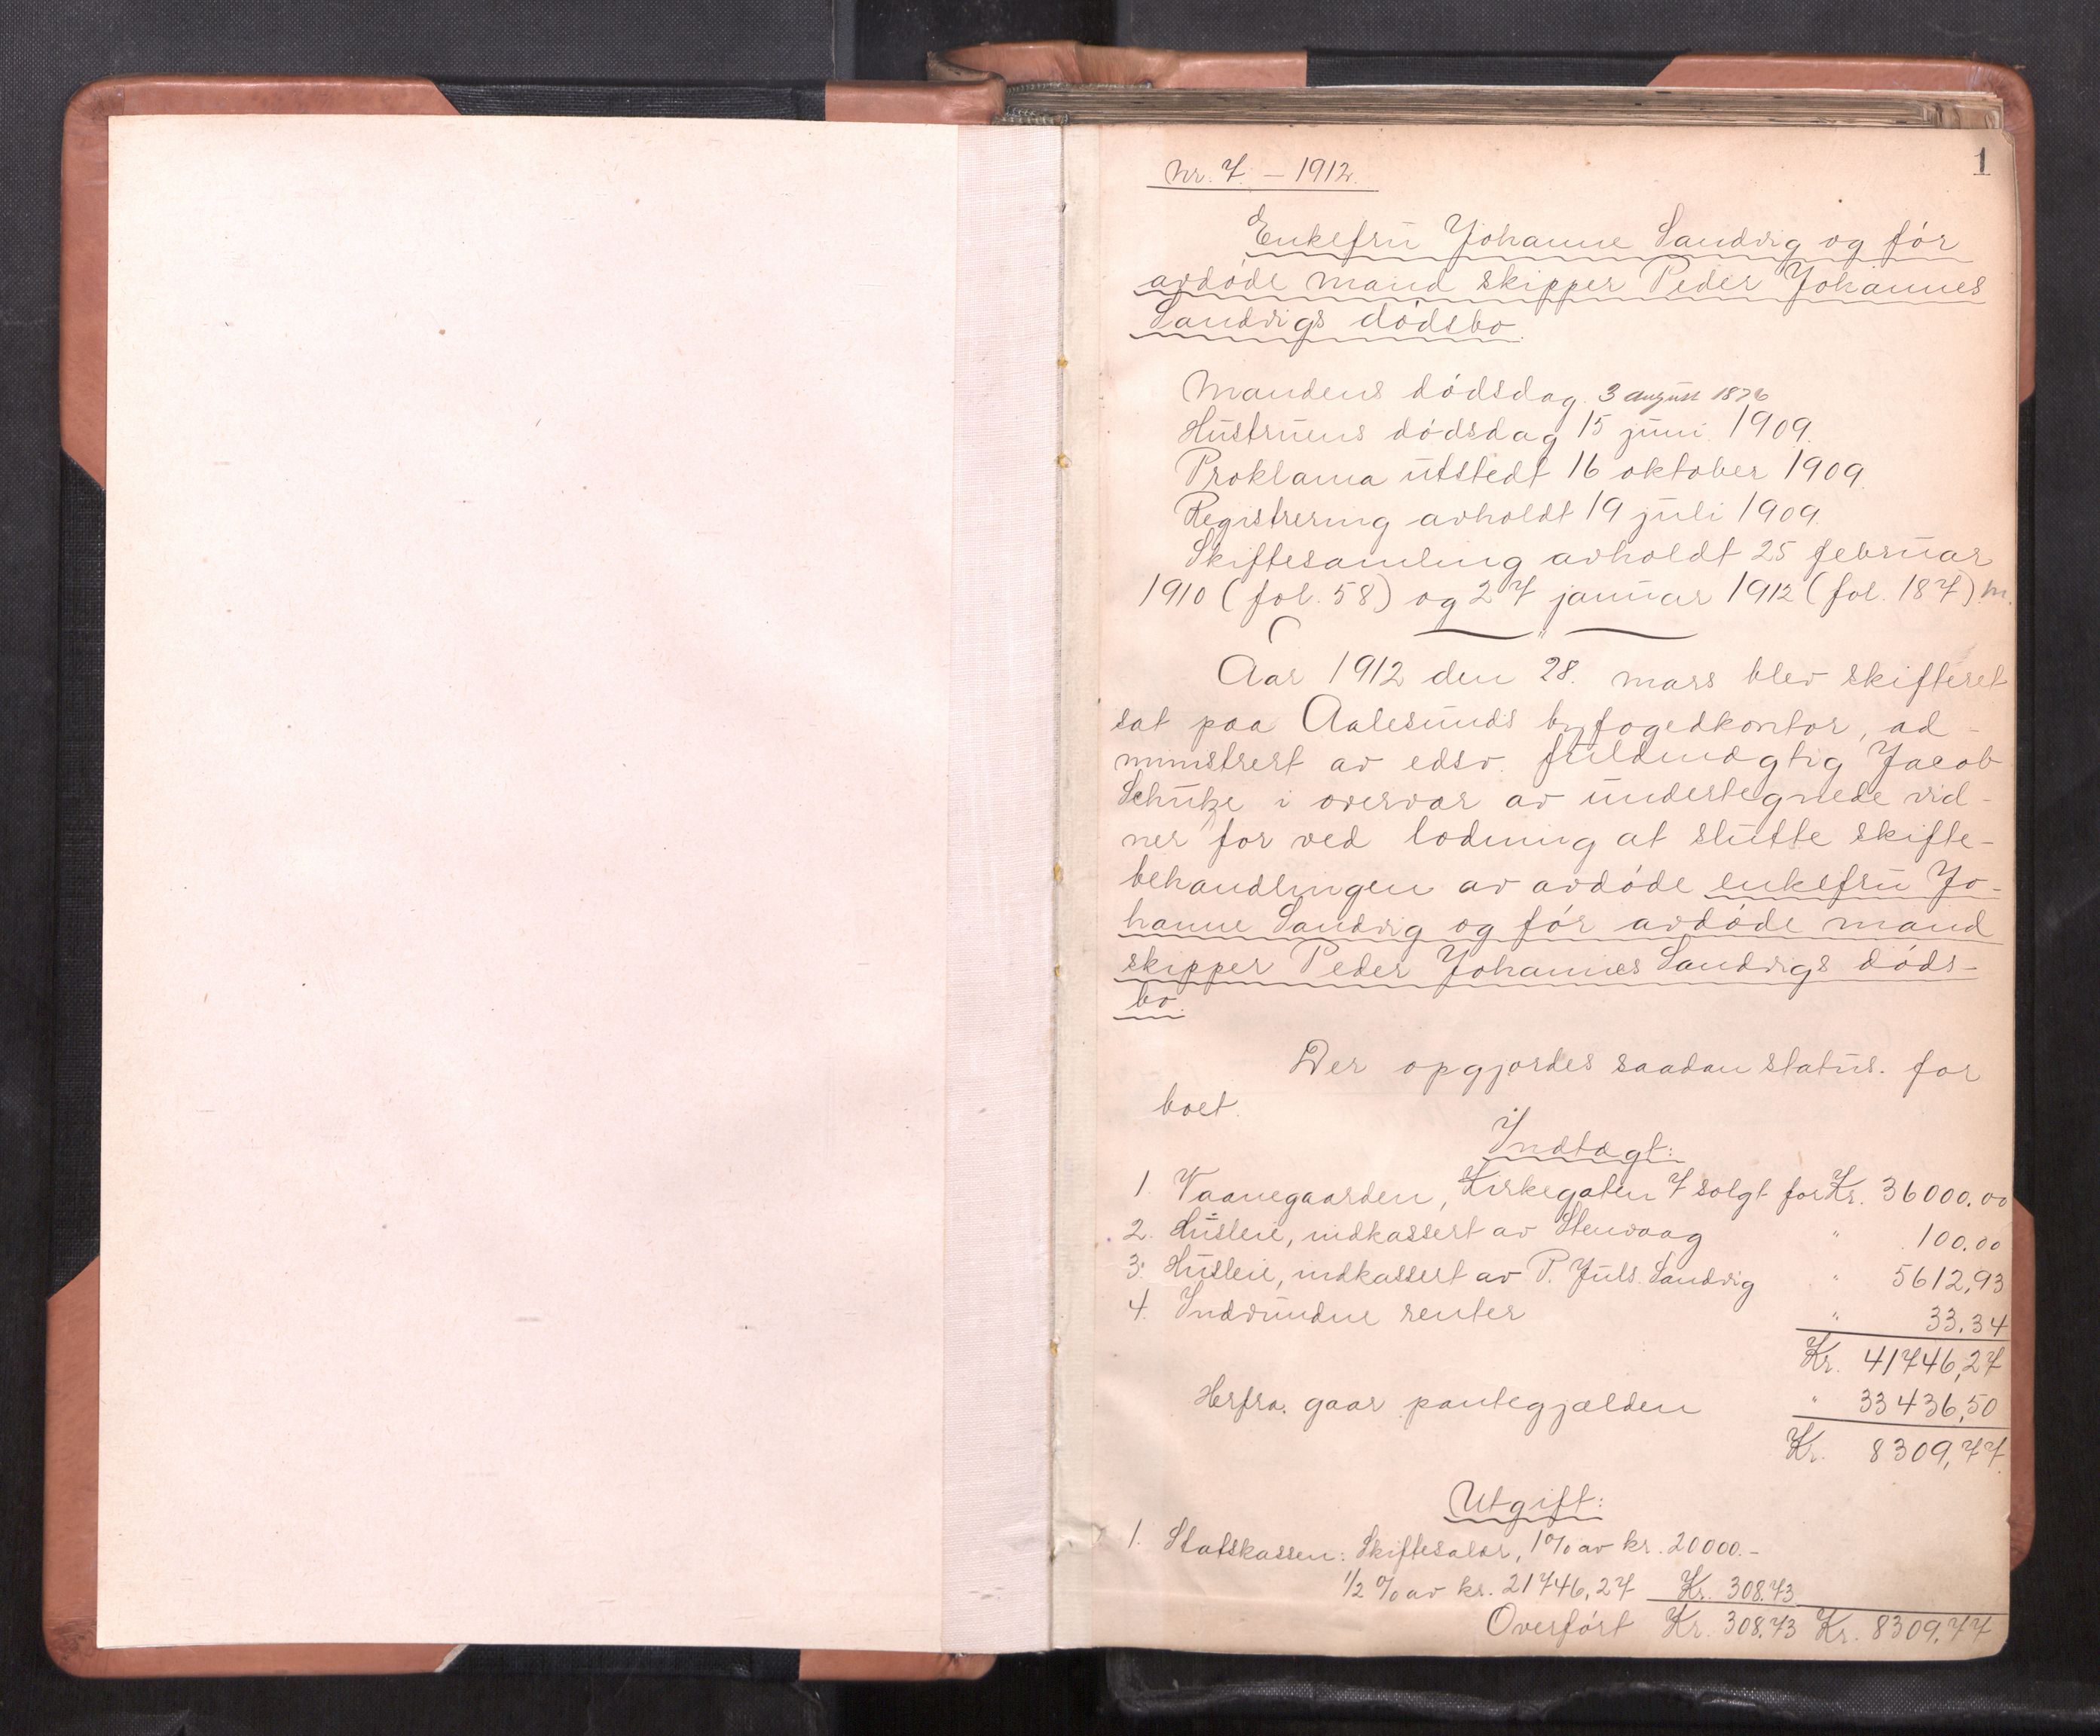 1
Nr. 7. – 1912.
Enkefru Johanne Sandvig og før
avdøde mand skipper Peder Johannes
Sandvigs dødsbo.
Mandens dødsdag 3 august 1876
Hustruens dødsdag 15 juni 1909.
Proklama utstedt 16 oktober 1909.
Registrering avholdt 19 juli 1909.
Skiftesamling avholdt 25 februar
1910 (fol. 58) og 27 januar 1912 (fol. 187). m.
Aar 1912 den 28. mars blev skifteret
sat paa Aalesunds byfogedkontor, ad-
ministrert av edsv. fuldmægtig Jacob
Schutze i overvær av undertegnede vid-
ner for ved lodning at slutte skifte-
behandlingen av avdøde enkefru Jo-
hanne Sandvig og før avdøde mand
skipper Peder Johannes Sandvigs døds-
bo.
Der opgjordes saadan status for
boet.
Indtægt:
1. Vaanegaarden, Kirkegaten 7 solgt for Kr. 36000.00
2. Husleie, indkassert av Stenvaag " 100.00
3. Husleie, indkassert av P. Juls. Sandvig " 5612,93
4. Indvundne renter " 33.34
Kr. 41746,27
Herfra gaar pantegjælden " 33436,50
Kr. 8309,77
Utgift:
1. Statskassen: Skiftesalær, 1% av kr. 20000.-
1/2 % av kr. 21746,27 Kr. 308.73
Overført Kr. 308.73 Kr. 8309.77